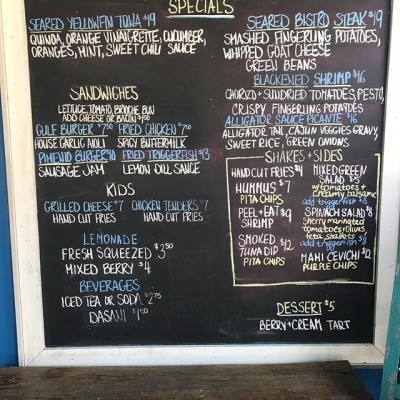 SPECIALS
SEARED YELLOWFIN TUNA $19
QUINOA, ORANGE VINAIGRETTE, CUCUMBER,
ORANGES, MINT, SWEET CHILI SAUCE
SANDWICHES
LETTUCE, TOMATO, BRIOCHE BUN
ADD CHEESE OR BACON $1.50
GULF BURGER $7.50 FRIED CHICKEN $7.50
HOUSE GARLIC AIOLI SPICY BUTTERMILK
PIMENTO BURGER $10 FRIED TRIGGERFISH $13
SAUSAGE JAM LEMON DILL SAUCE
KIDS
GRILLED CHEESE $7 CHICKEN TENDERS $7
HAND CUT FRIES HAND CUT FRIES
LEMONADE
FRESH SQUEEZED $3.50
MIXED BERRY $4
BEVERAGES
ICED TEA OR SODA $2.75
DASANI $1.50
SEARED BISTRO STEAK $19
SMASHED FINGERLING POTATOES,
WHIPPED GOAT CHEESE
GREEN BEANS
BLACKENED SHRIMP $16
CHORIZO + SUNDRIED TOMATOES, PESTO,
CRISPY FINGERLING POTATOES
ALLIGATOR SAUCE PICANTE $16
ALLIGATOR TAIL, CAJUN VEGGIES GRAVY,
SWEET RICE, GREEN ONIONS
SHAKES + SIDES
HAND CUT FRIES $4
HUMMUS $7
PITA CHIPS
PEEL + EAT $9
SHRIMP
SMOKED $12
TUNA DIP
PITA CHIPS
MIXED GREEN
SALAD $5
w/tomatoes +
creamy balsamic
add triggerfish $8
SPINACH SALAD $8
sherry marinated
tomatoes, olives,
feta, shallots
add triggerfish $8
MAHI CEVICHE $12
PURPLE CHIPS
DESSERT $5
BERRY + CREAM TART